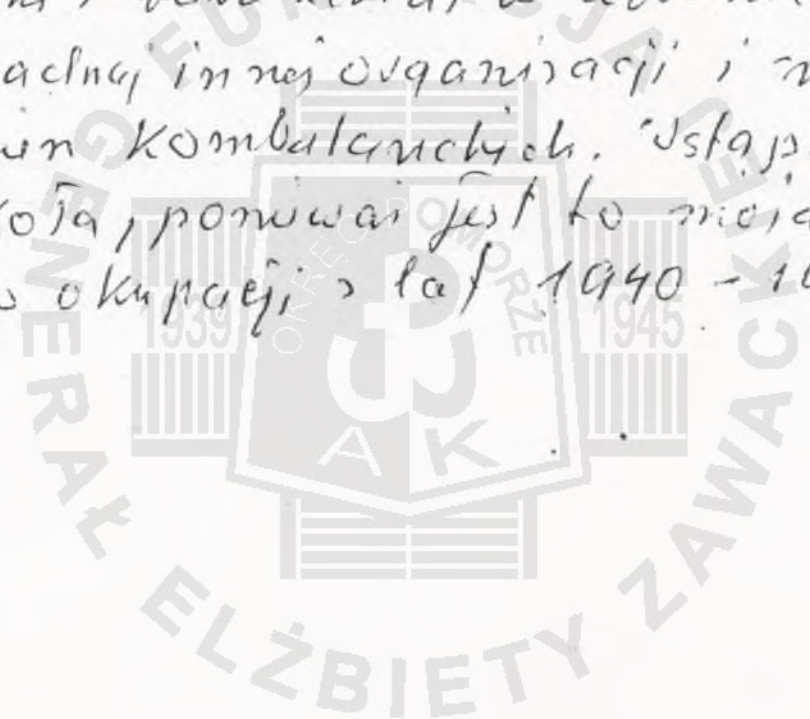 żadnej innej organizacji i
kombatanckich. Wstąp
koła, ponieważ jest to moja
okupacji z lat 1940 - 19
FUNDACJA
GENERAŁ ELŻBIETY ZAWACKIEJ
OKRĘG POMORZE
1939
1945
AK